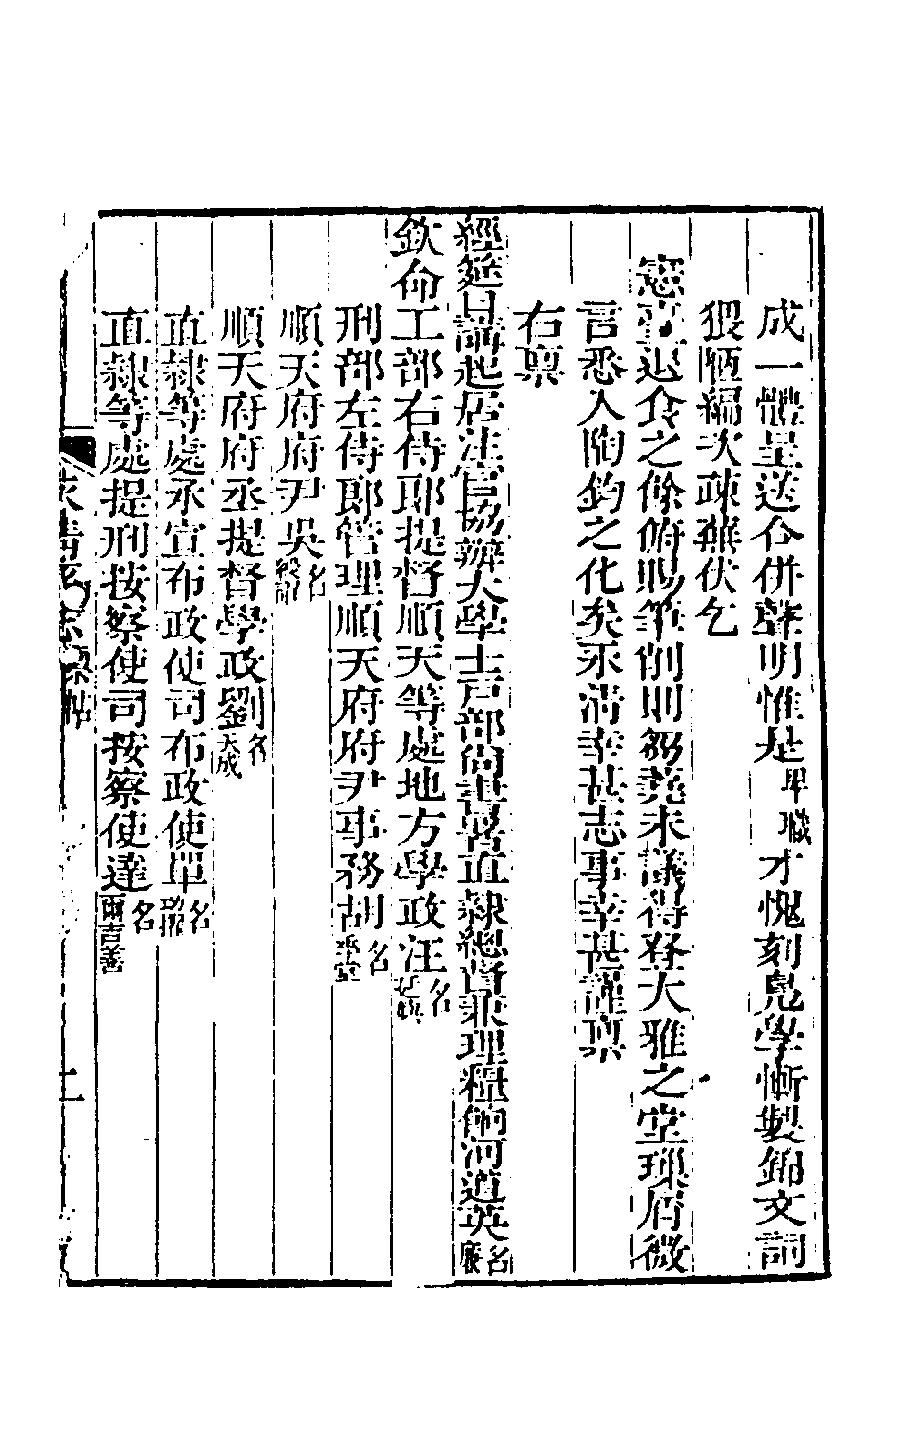 成一體呈送合併聲明惟是卑職才愧刻鳧學慚製錦文詞
猥陋編次疎蕪伏乞
憲臺退食之餘俯賜筆削則芻蕘末議得登大雅之堂瑣屑微
言悉入陶鈞之化矣禾淸幸甚志事幸甚謹稟
右稟
經筵日講起居注官協辦大學士戶部尚書署直隸總督兼理糧餉河道英名廉
欽命工部右侍郎提督順天等處地方學政汪名
刑部左侍郎管理順天府府尹事務胡名季堂
順天府府尹吳名
順天府府丞提督學政劉名天成
直隸等處承宣布政使司布政使單名
直隸等處提刑按察使司按察使達名爾吉善
永清縣志 稟帖